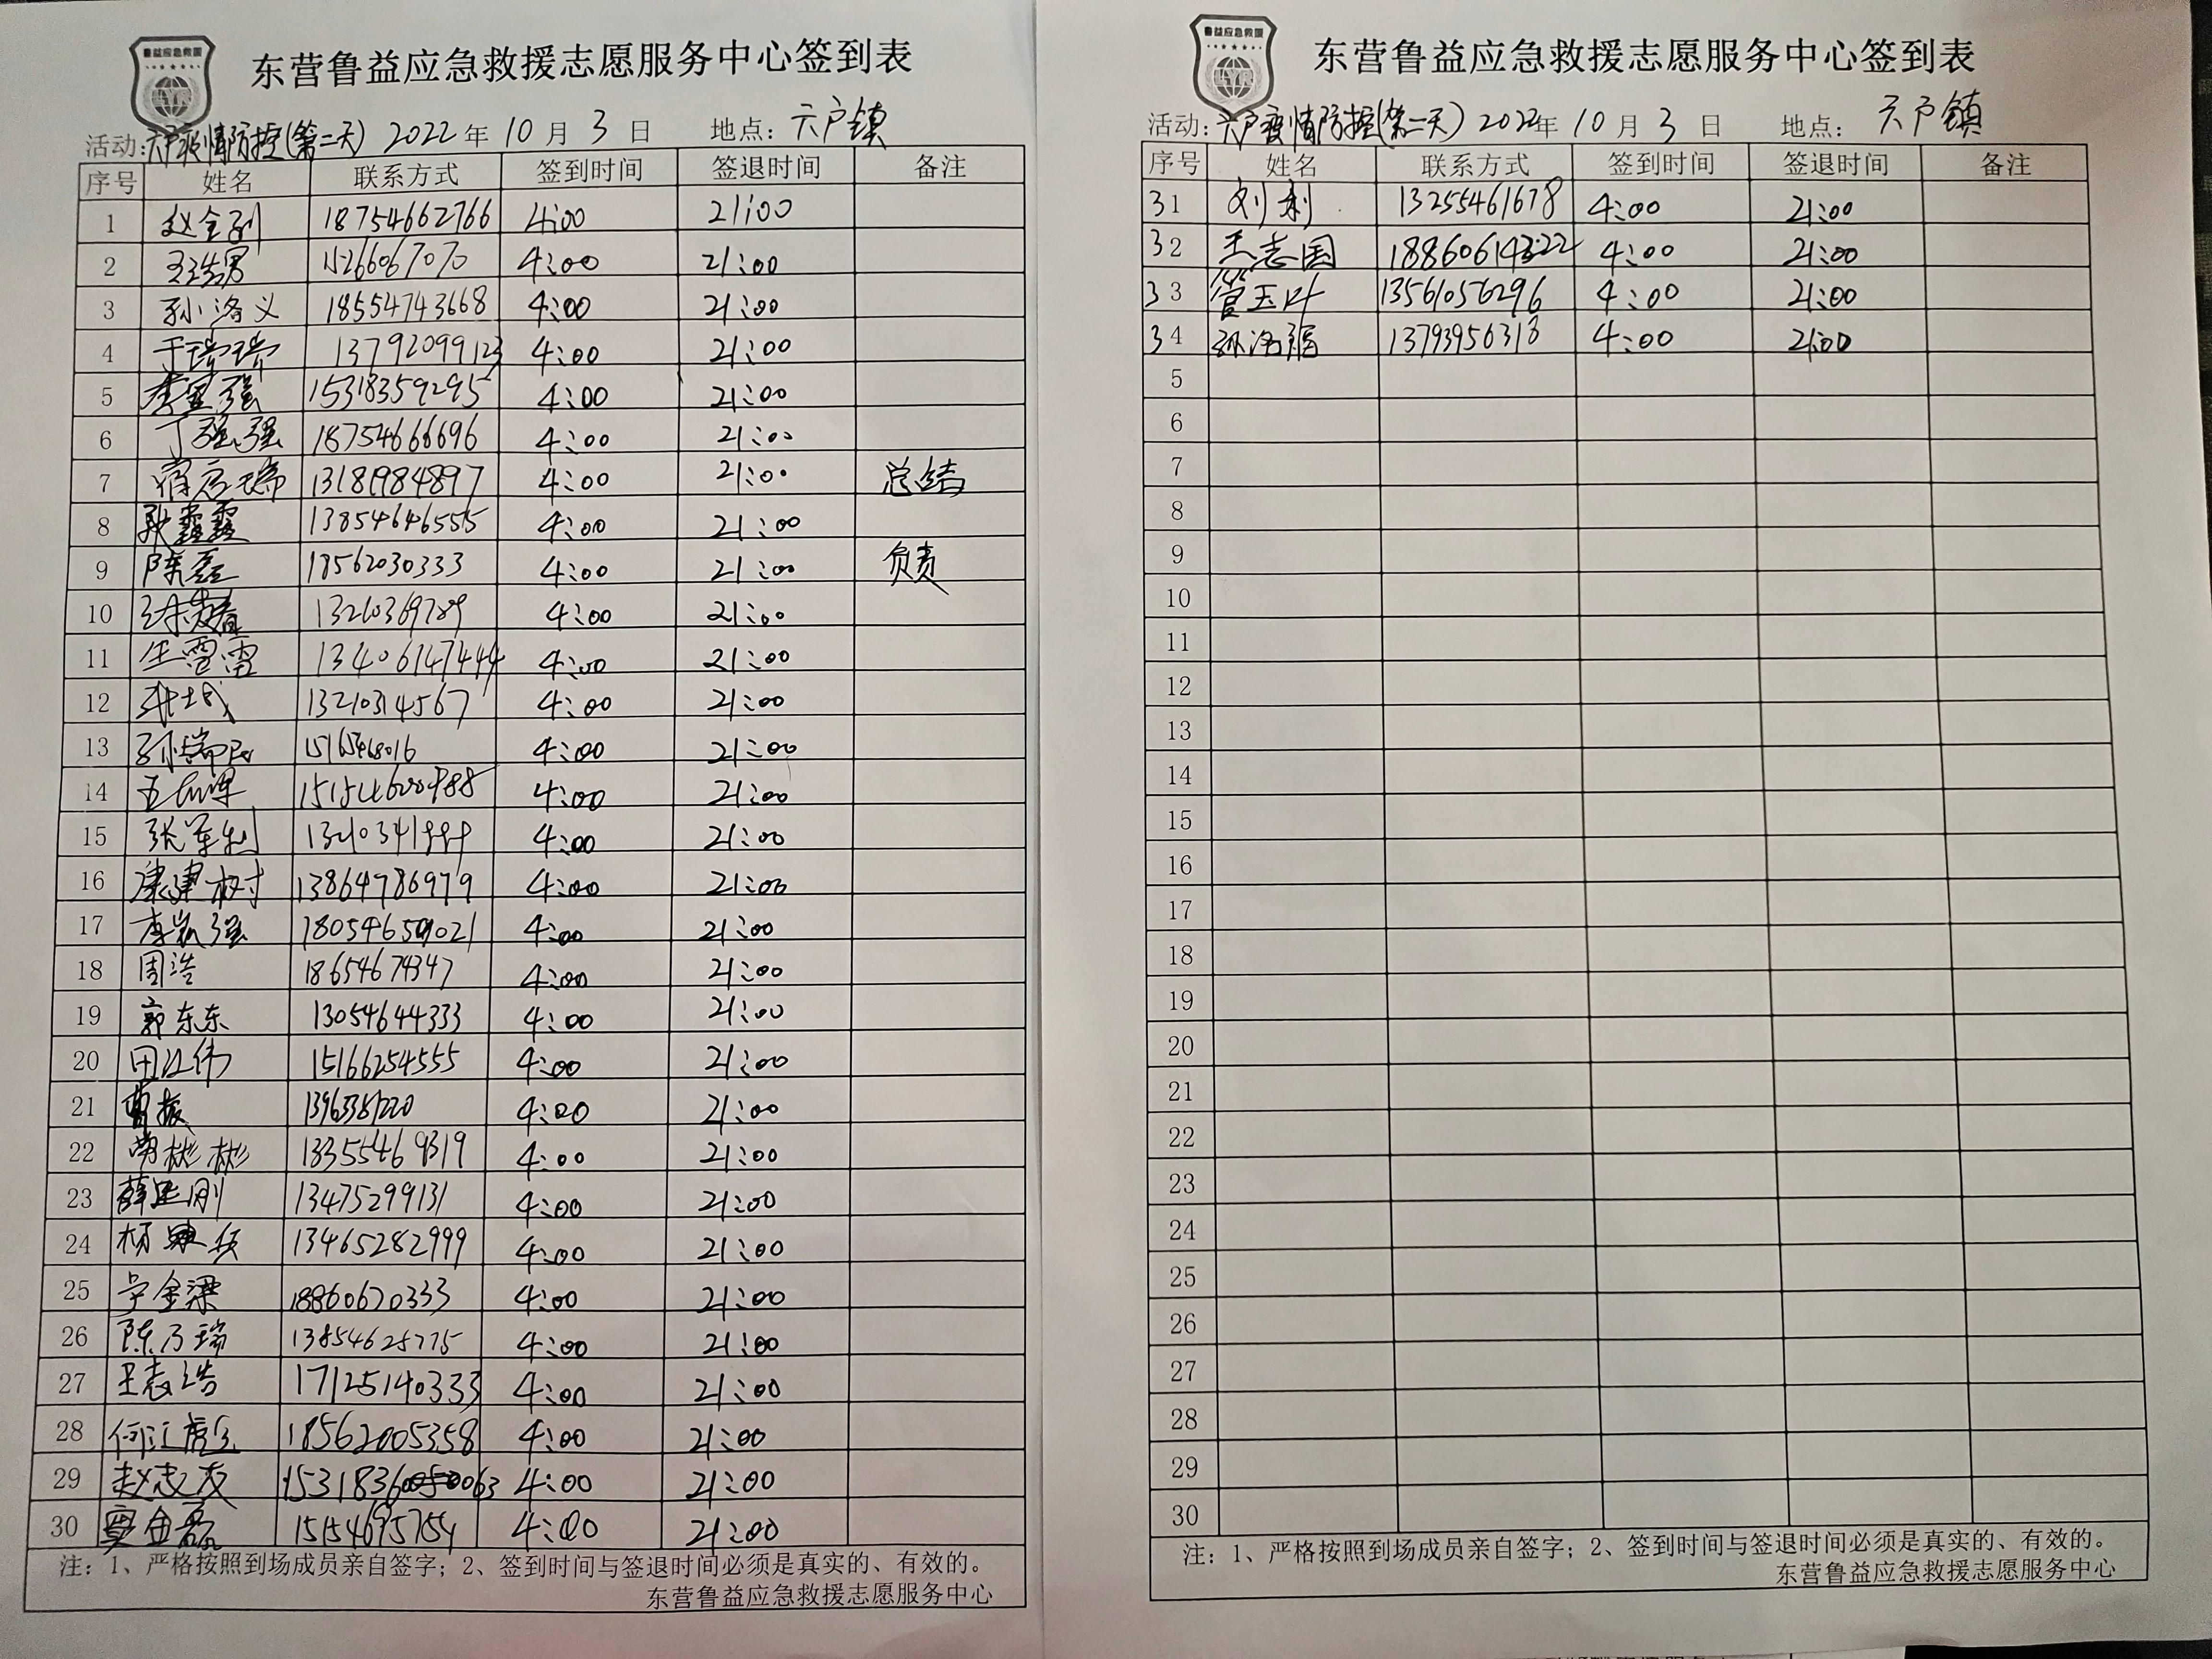 鲁益应急救援
东营鲁益应急救援志愿服务中心签到表
活动:六户疫情防控(第二天) 2022年10月3日 地点:六户镇
序号 姓名 联系方式 签到时间 签退时间 备注
1 赵全利 18754662766 4:00 21:00
2 4:00 21:00
3 孙洛义 18554743668 4:00 21:00
4 于瑞瑞 13792099123 4:00 21:00
5 李宝强 15318359295 4:00 21:00
6 丁强强 18754666696 4:00 21:00
7 13181984897 4:00 21:00 总结
8 耿鑫鑫 13854646555 4:00 21:00
9 陈磊 18562030333 4:00 21:00 负责
10 13210369789 4:00 21:00
11 生雷雷 13406147444 4:00 21:00
12 13210314567 4:00 21:00
13 4:00 21:00
14 4:00 21:00
15 张军利 4:00 21:00
16 康建树 13864786979 4:00 21:00
17 李凯强 18054659021 4:00 21:00
18 周浩 18654674347 4:00 21:00
19 郭东东 13054644333 4:00 21:00
20 田江伟 15166254555 4:00 21:00
21 曹振 4:00 21:00
22 彬彬 13355469319 4:00 21:00
23 薛建刚 13475299131 4:00 21:00
24 杨 13465282999 4:00 21:00
25 金梁 18860620333 4:00 21:00
26 陈乃瑞 13854625775 4:00 21:00
27 王志浩 17125140333 4:00 21:00
28 何江 18562005358 4:00 21:00
29 赵志友 4:00 21:00
30 窦金磊 15154695754 4:00 21:00
注:1、严格按照到场成员亲自签字;2、签到时间与签退时间必须是真实的、有效的。
东营鲁益应急救援志愿服务中心
鲁益应急救援
东营鲁益应急救援志愿服务中心签到表
活动:六户疫情防控(第二天) 2022年10月3日 地点:六户镇
序号 姓名 联系方式 签到时间 签退时间 备注
31 刘利 13255461678 4:00 21:00
32 王志国 18860614322 4:00 21:00
33 管玉叶 13561056296 4:00 21:00
34 孙洛福 13793956318 4:00 21:00
5
6
7
8
9
10
11
12
13
14
15
16
17
18
19
20
21
22
23
24
25
26
27
28
29
30
注:1、严格按照到场成员亲自签字;2、签到时间与签退时间必须是真实的、有效的。
东营鲁益应急救援志愿服务中心